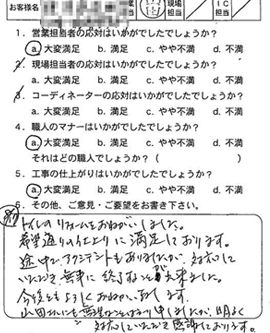 お客様名 現場担当 IC担当
1. 営業担当者の応対はいかがでしたでしょうか?
a. 大変満足 b. 満足 c. やや不満 d. 不満
2. 現場担当者の応対はいかがでしたでしょうか?
a. 大変満足 b. 満足 c. やや不満 d. 不満
3. コーディネーターの応対はいかがでしたでしょうか?
a. 大変満足 b. 満足 c. やや不満 d. 不満
4. 職人のマナーはいかがでしたでしょうか?
a. 大変満足 b. 満足 c. やや不満 d. 不満
それはどの職人でしょうか?( )
5. 工事の仕上がりはいかがでしたでしょうか?
a. 大変満足 b. 満足 c. やや不満 d. 不満
6. その他、ご意見・ご要望をお書き下さい。
トイレのリフォームをおねがいしました。
希望通りの仕上りに満足しております。
途中でアクシデントもありましたが、対応して
いただき、無事に終了することが出来ました。
今後ともよろしくおねがい致します
山田さんにも無理なことばかり申しましたが、明るく
対応していただいて感謝しております。